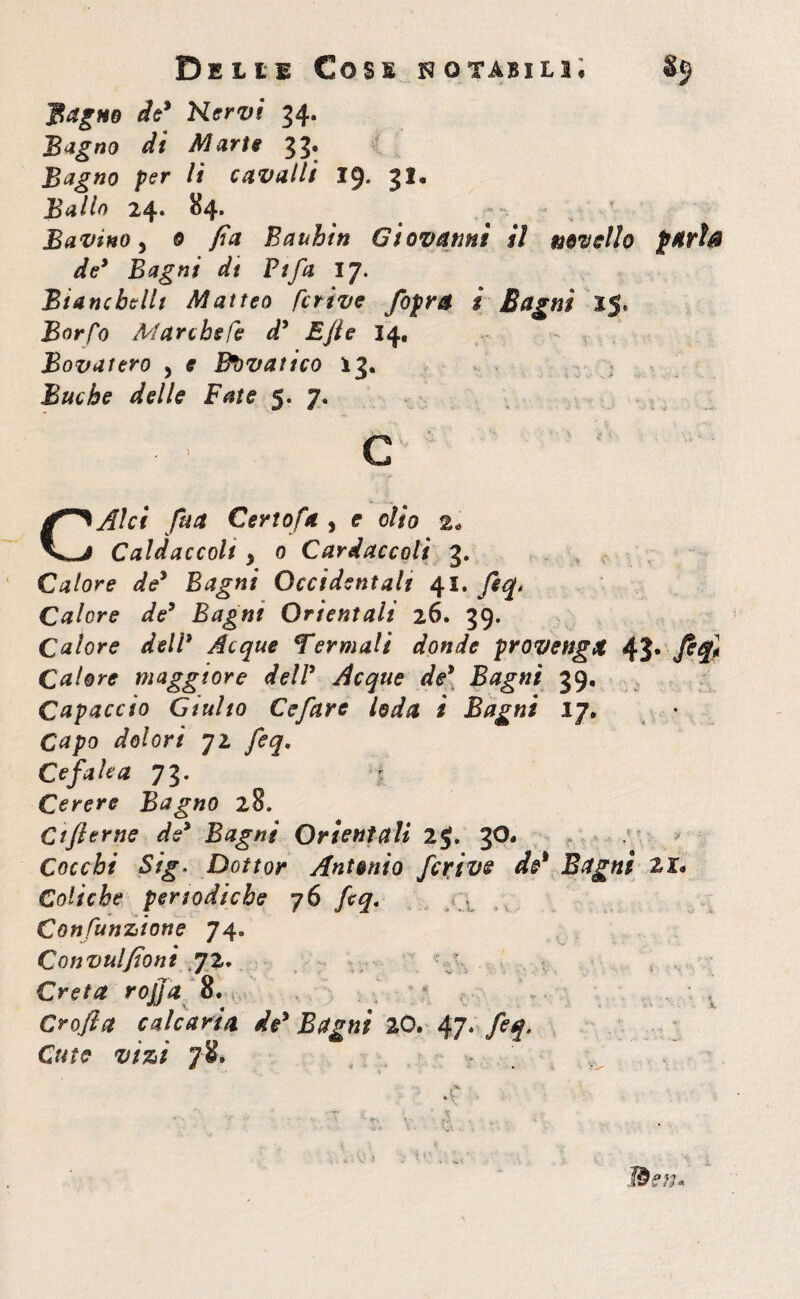 DELLE COSE NOTABILI. 89
Bagno de' Nervi 34.
Bagno di Marte 33.
Bagno per li cavalli 19. 31.
Ballo 24. 84.
Bavino, o ſia Bauhin Giovanni il novello parla
de' Bagni di Piſa 17.
Bianchelli Matteo ſcrive ſopra i Bagni 15.
Borſo Marcheſe d' Eſte 14.
Bovatero, e Bovatico 13.
Buche delle Fate 5. 7.
C
CAlci ſua Certoſa, e olio 2.
Caldaccoli, o Cardaccoli 3.
Calore de' Bagni Occidentali 41. ſeq.
Calore de' Bagni Orientali 26. 39.
Calore dell' Acque Termali donde provenga 43. ſeq.
Calore maggiore dell' Acque de' Bagni 39.
Capaccio Giulio Ceſare loda i Bagni 17.
Capo dolori 72 ſeq.
Cefalea 73.
Cerere Bagno 28.
Ciſterne de' Bagni Orientali 25. 30.
Cocchi Sig. Dottor Antonio ſcrive de' Bagni 21.
Coliche periodiche 76 ſeq.
Confunzione 74.
Convulſioni 72.
Creta roſſa 8.
Croſta calcaria de' Bagni 20. 47. ſeq.
Cute vizi 78.
Den.